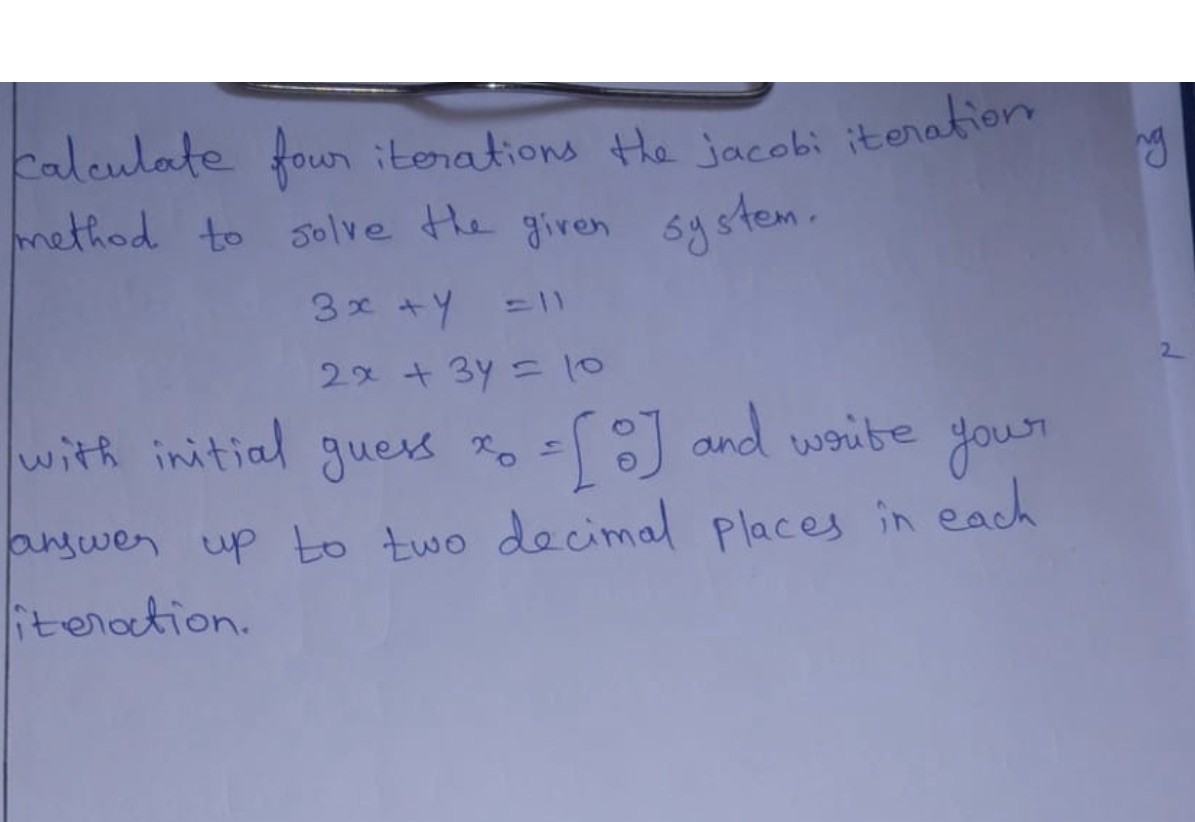 Calculate four iterations the jacobi iteration
method to solve the given system.
3x + y = 11
2x + 3y = 10
with initial guess x₀ = [0 0] and write your
answer up to two decimal places in each
iteration.
ng
2